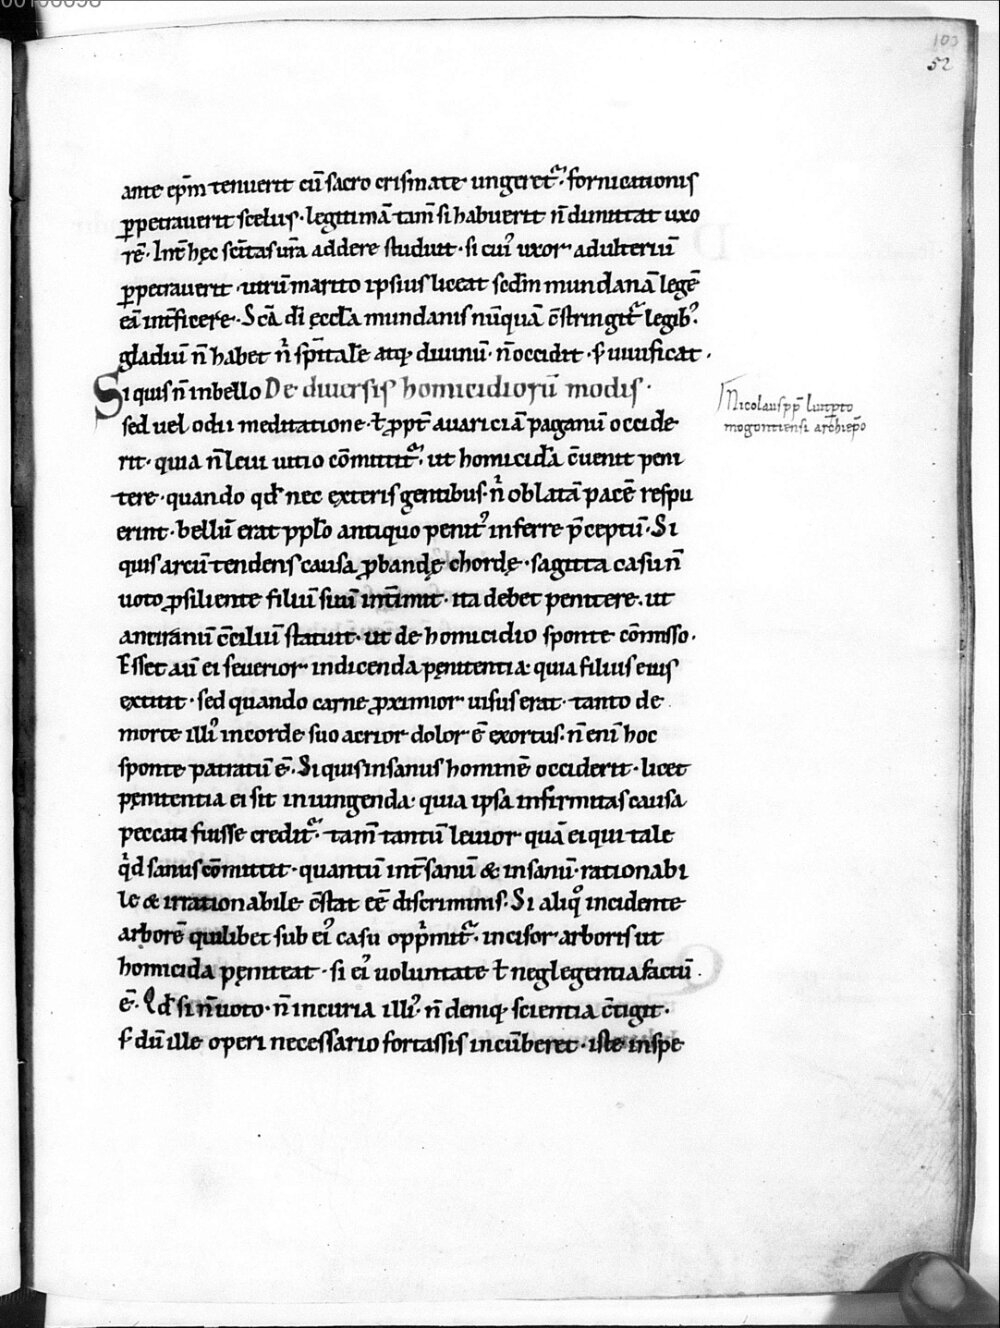 103
52
ante ep̄m tenuerit cū sacro crismate ungeret᷑. fornicationis
ꝑpetrauerit scelus· legitimā tam̄ si habuerit n̄ dimittat uxo
rē· Int̄ hęc sc̄itas ur̄a addere studuit· si cui᷒ uxor adulteriū
ꝑpetrauerit· utrū marito ipsius liceat scd̄m mundanā legē
eā int̄ficere· Sc̄a dī ęccl̄a mundanis nūquā c̄stringit᷑ legib᷒.
gladiū n̄ habet nͥ sp̄itale atq; diuinū· n̄ occidit· s᷒ uiuificat·
Si quis n̄ in bello De diuersis homicidiorū modis·
Nicolaus pp̄ liutp̄to
mogontiensi archiep̄o
sed uel odii meditatione· ł ꝓpt̄ auariciā paganū occide
rit· quia n̄ leui uitio cōmittit᷑. ut homicida c̄uenit peni
tere· quando qđ nec exteris gentibus· nͥ oblatā pacē respu
erint· bellū erat ppl̄o antiquo penit᷒ inferre p̄ceptū· Si
quis arcū tendens causa ꝓbandę chordę· sagitta casu n̄
uoto ꝓsiliente filiū suū int̄imit· ita debet penitere· ut
anciranū c̄ciliū statuit· ut de homicidio sponte cōmisso·
Esset aū ei seuerior indicenda pęnitentia· quia filius eius
extitit· sed quando carne ꝓximior uisus erat· tanto de
morte illi᷒ in corde suo acrior dolor ē exortus· n̄ eni hoc
sponte patratū ē· Si quis insanus hominē occiderit· licet
pęnitentia ei sit iniungenda· quia ipsa infirmitas causa
peccati fuisse credit᷑· tam̄ tantū leuior quā ei qui tale
qͥd sanus cōmittit· quantū int̄ sanū & insanū· rationabi
le & irrationabile c̄stat eē discriminis· Si aliqͦ incidente
arborē quilibet sub ei᷒ casu oppͥmit᷑. incisor arboris ut
homicida pęniteat· si ei᷒ uoluntate ł neglegentia factū
ē· Qđ si n̄ uoto· n̄ incuria illi᷒· n̄ deniq; scientia c̄tigit·
s᷒ dū ille operi necessario fortassis incūberet· iste inspe